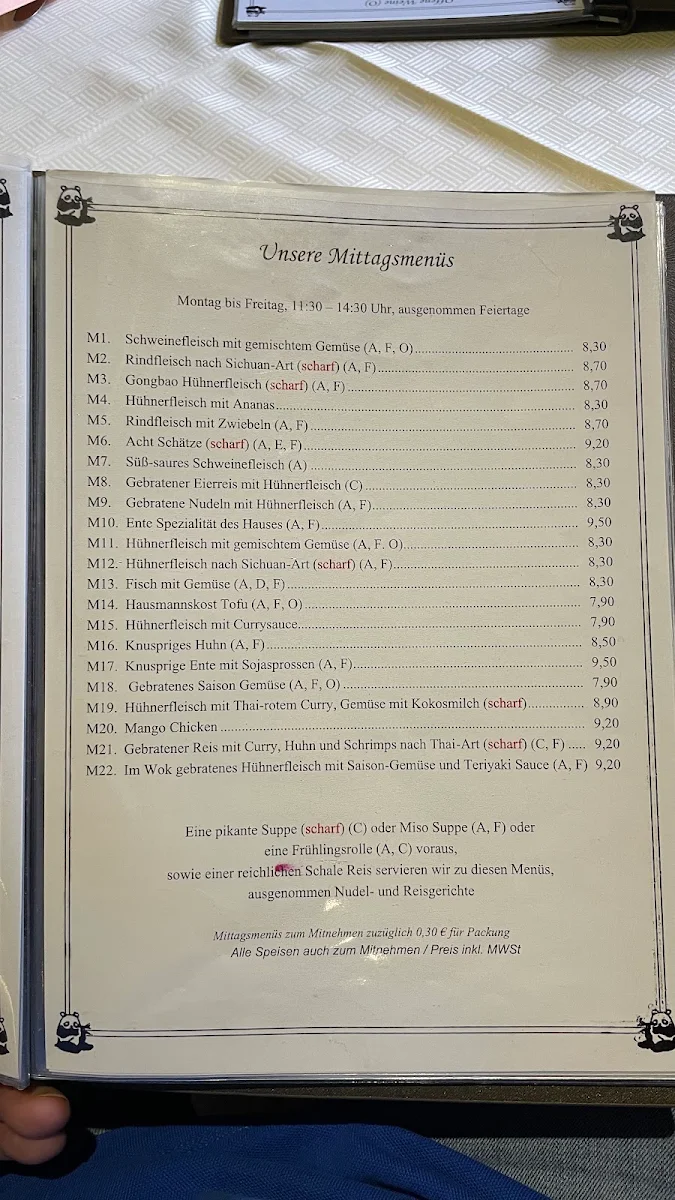 Offene Weine (O)
Unsere Mittagsmenüs
Montag bis Freitag, 11:30 – 14:30 Uhr, ausgenommen Feiertage
M1. Schweinefleisch mit gemischtem Gemüse (A, F, O) 8,30
M2. Rindfleisch nach Sichuan-Art (scharf) (A, F) 8,70
M3. Gongbao Hühnerfleisch (scharf) (A, F) 8,70
M4. Hühnerfleisch mit Ananas 8,30
M5. Rindfleisch mit Zwiebeln (A, F) 8,70
M6. Acht Schätze (scharf) (A, E, F) 9,20
M7. Süß-saures Schweinefleisch (A) 8,30
M8. Gebratener Eierreis mit Hühnerfleisch (C) 8,30
M9. Gebratene Nudeln mit Hühnerfleisch (A, F) 8,30
M10. Ente Spezialität des Hauses (A, F) 9,50
M11. Hühnerfleisch mit gemischtem Gemüse (A, F. O) 8,30
M12. Hühnerfleisch nach Sichuan-Art (scharf) (A, F) 8,30
M13. Fisch mit Gemüse (A, D, F) 8,30
M14. Hausmannskost Tofu (A, F, O) 7,90
M15. Hühnerfleisch mit Currysauce 7,90
M16. Knuspriges Huhn (A, F) 8,50
M17. Knusprige Ente mit Sojasprossen (A, F) 9,50
M18. Gebratenes Saison Gemüse (A, F, O) 7,90
M19. Hühnerfleisch mit Thai-rotem Curry, Gemüse mit Kokosmilch (scharf) 8,90
M20. Mango Chicken 9,20
M21. Gebratener Reis mit Curry, Huhn und Schrimps nach Thai-Art (scharf) (C, F) 9,20
M22. Im Wok gebratenes Hühnerfleisch mit Saison-Gemüse und Teriyaki Sauce (A, F) 9,20
Eine pikante Suppe (scharf) (C) oder Miso Suppe (A, F) oder
eine Frühlingsrolle (A, C) voraus,
sowie einer reichlichen Schale Reis servieren wir zu diesen Menüs,
ausgenommen Nudel- und Reisgerichte
Mittagsmenüs zum Mitnehmen zuzüglich 0,30 € für Packung
Alle Speisen auch zum Mitnehmen / Preis inkl. MWSt